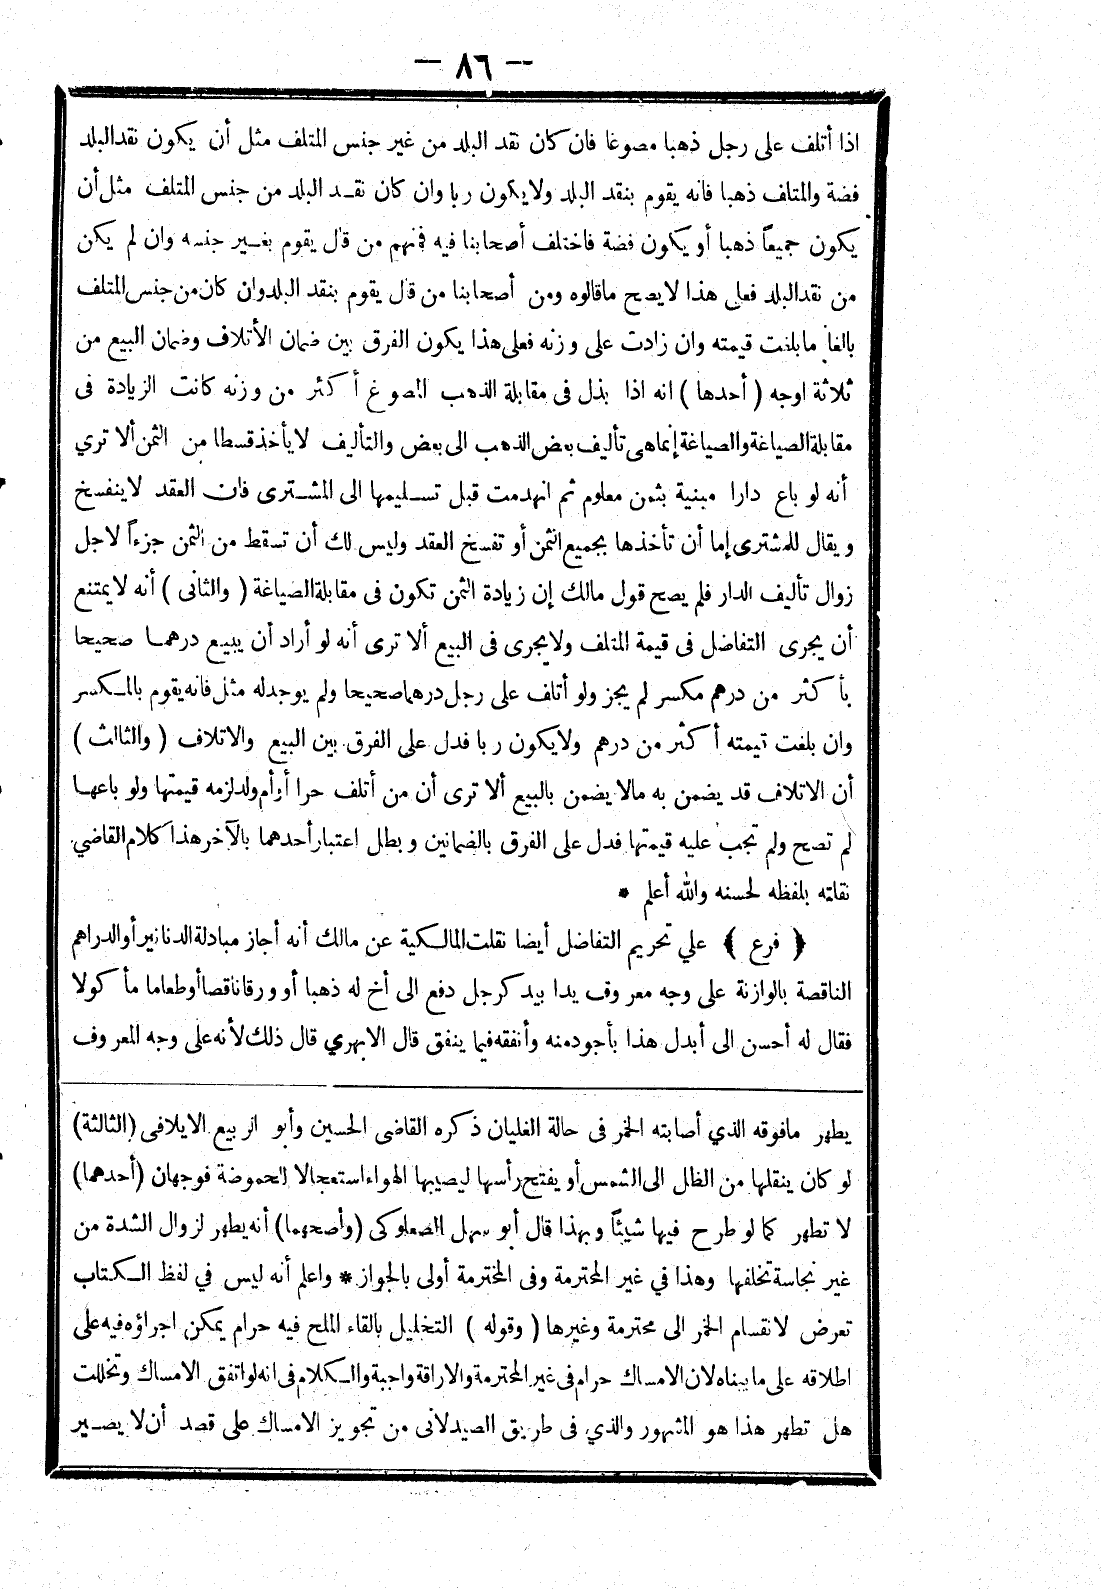 — ٨٦ —
اذا أتلف على رجل ذهبا مصوغا فان كان نقد البلد من غير جنس المتلف مثل أن يكون نقد البلد
فضة والمتلف ذهبا فانه يقوم بنقد البلد ولا يكون ربا وان كان نقد البلد من جنس المتلف مثل أن
يكون جميعاً ذهبا أو يكون فضة فاختلف أصحابنا فيه فمنهم من قال يقوم بغير جنسه وان لم يكن
من نقد البلد فعلى هذا لا يصح ما قالوه ومن أصحابنا من قال يقوم بنقد البلد وان كان من جنس المتلف
بالغا ما بلغت قيمته وان زادت على وزنه فعلى هذا يكون الفرق بين ضمان الأتلاف وضمان البيع من
ثلاثة اوجه ( أحدها ) انه اذا بذل فى مقابلة الذهب المصوغ أكثر من وزنه كانت الزيادة فى
مقابلة الصياغة والصياغة إنما هى تأليف بعض الذهب الى بعض والتأليف لا يأخذ قسطا من الثمن ألا تري
أنه لو باع دارا مبنية بثمن معلوم ثم انهدمت قبل تسليمها الى المشترى فان العقد لا ينفسخ
ويقال للمشترى إما أن تأخذها بجميع الثمن أو تفسخ العقد وليس لك أن تسقط من الثمن جزءاً لاجل
زوال تأليف الدار فلم يصح قول مالك إن زيادة الثمن تكون فى مقابلة الصياغة ( والثانى ) أنه لا يمتنع
أن يجرى التفاضل فى قيمة المتلف ولا يجرى فى البيع ألا ترى أنه لو أراد أن يبيع درهما صحيحا
بأكثر من درهم مكسر لم يجز ولو أتلف على رجل درهما صحيحا ولم يوجد له مثل فانه يقوم بالمكسر
وان بلغت قيمته أكثر من درهم ولا يكون ربا فدل على الفرق بين البيع والاتلاف ( والثالث )
أن الاتلاف قد يضمن به مالا يضمن بالبيع ألا ترى أن من أتلف حرا أو أم ولد لزمه قيمتها ولو باعها
لم تصح ولم تجب عليه قيمتها فدل على الفرق بالضمانين وبطل اعتبار أحدهما بالآخر هذا كلام القاضي
نقلته بلفظه لحسنه والله أعلم *
﴿ فرع ﴾ علي تحريم التفاضل أيضا نقلت المالكية عن مالك أنه أجاز مبادلة الدنانير أو الدراهم
الناقصة بالوازنة على وجه معروف يدا بيد كرجل دفع الى أخ له ذهبا أو ورقا ناقصا أو طعاما مأكولا
فقال له أحسن الى أبدل هذا بأجود منه وأنفقه فيما ينفق قال الابهري قال ذلك لأنه على وجه المعروف
يطهر مافوقه الذي أصابته الخمر فى حالة الغليان ذكره القاضى الحسين وأبو الربيع الايلافى (الثالثة)
لو كان ينقلها من الظل الى الشمس أو يفتح رأسها ليصيبها الهواء استعجالا للحموضة فوجهان (أحدهما)
لا تطهر كما لو طرح فيها شيئاً وبهذا قال أبو سهل الصعلوكى (وأصحهما) أنه يطهر لزوال الشدة من
غير نجاسة تخلفها وهذا في غير المحترمة وفى المحترمة أولى بالجواز * واعلم أنه ليس في لفظ الكتاب
تعرض لانقسام الخمر الى محترمة وغيرها ( وقوله ) التخليل بالقاء الملح فيه حرام يمكن اجراؤه فيه على
اطلاقه على ما بيناه لان الامساك حرام فى غير المحترمة والاراقة واجبة والكلام فى انه لو اتفق الامساك وتخللت
هل تطهر هذا هو المشهور والذي فى طريق الصيدلانى من تجويز الامساك على قصد أن لا يصير